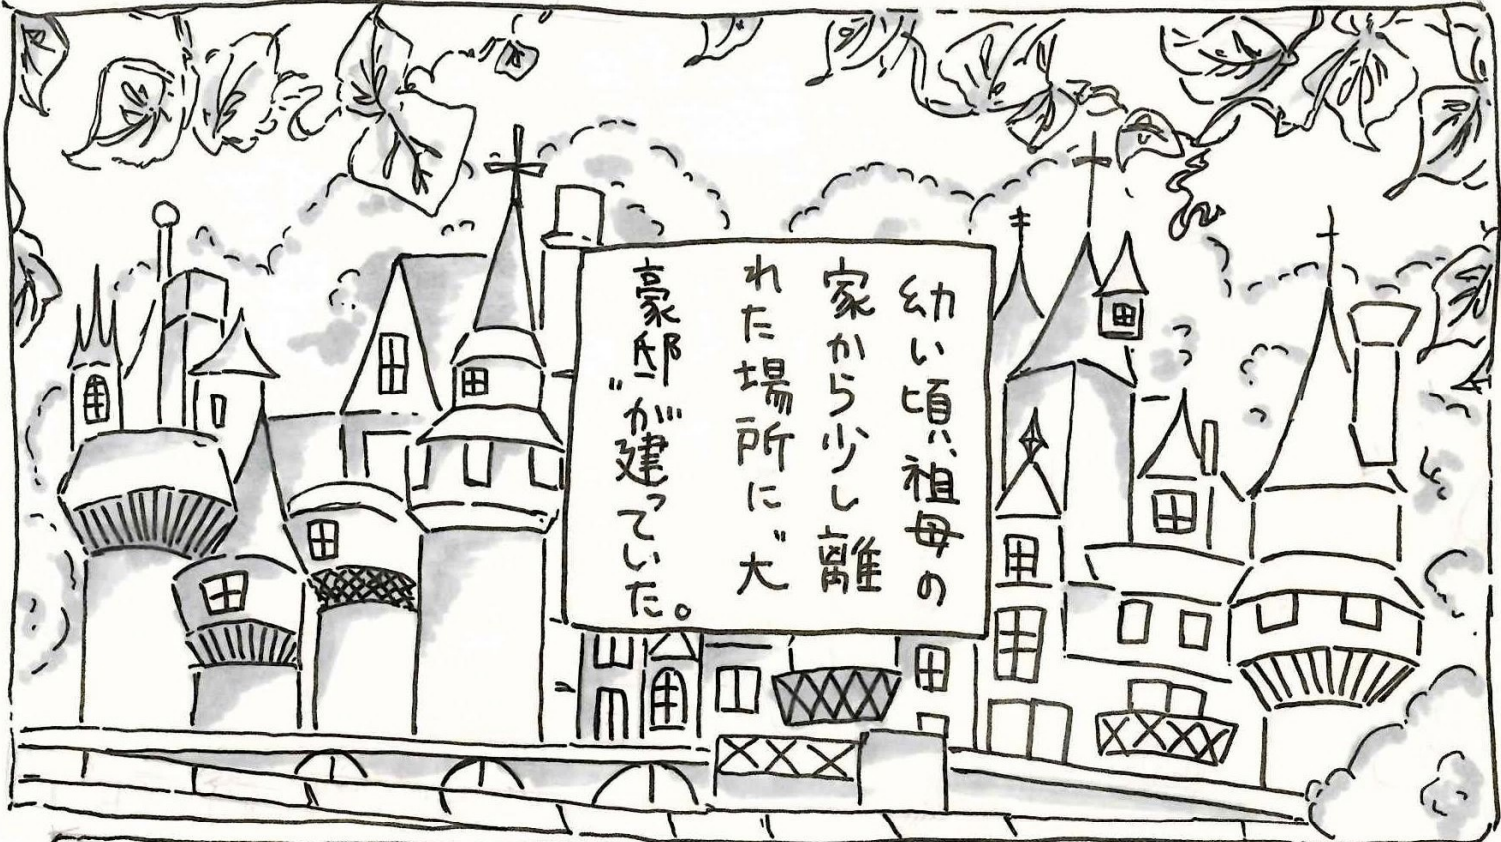 幼い頃、祖母の
家から少し離
れた場所に〝大
豪邸〟が建っていた。